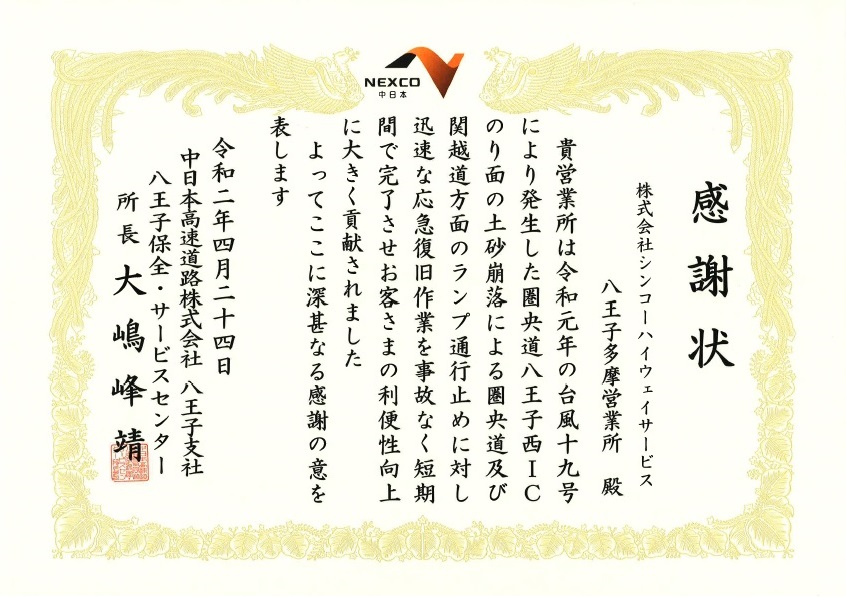 NEXCO
中日本
感謝状
株式会社シンコーハイウェイサービス
八王子多摩営業所 殿
貴営業所は令和元年の台風十九号
により発生した圏央道八王子西IC
のり面の土砂崩落による圏央道及び
関越道方面のランプ通行止めに対し
迅速な応急復旧作業を事故なく短期
間で完了させお客さまの利便性向上
に大きく貢献されました
よってここに深甚なる感謝の意を
表します
令和二年四月二十四日
中日本高速道路株式会社 八王子支社
八王子保全・サービスセンター
所長 大嶋峰靖